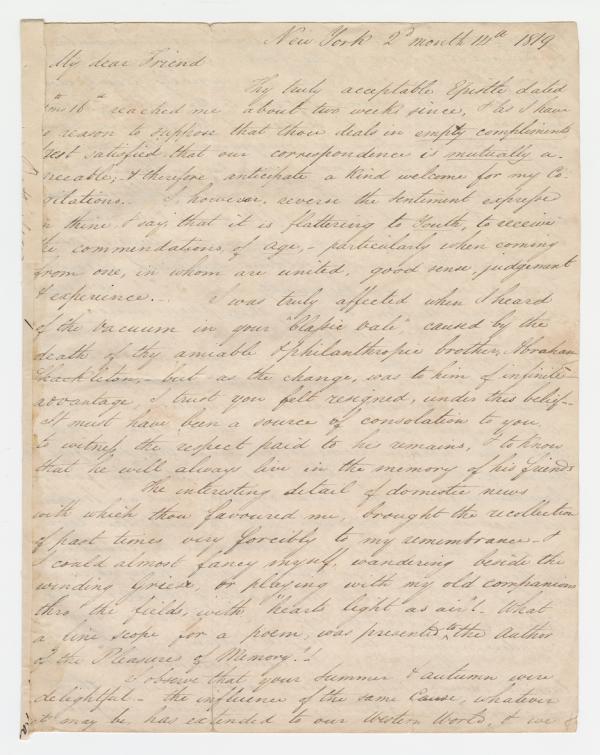 New York 2d month 14th 1819
My dear Friend
Thy truly acceptable Epistle dated
16th reached me about two weeks since, & as I have
reason to suppose that thou deals in empty compliments
rest satisfied that our correspondence is mutually a-
greeable, & therefore anticipate a kind welcome for my Co-
gitations. I, however, reverse the sentiment express'd
in thine, & say, that it is flattering to Youth, to receive
the commendations of age, - particularly when coming
from one, in whom are united, good sense, judgement
& experience... I was truly affected when I heard
of the vacuum in your "Classic vale" caused by the
death of thy amiable & philanthropic brother, Abraham
Shackleton, - but as the change, was to him of infinite
advantage, I trust you felt resigned, under this belief -
It must have been a source of consolation to you
to witness the respect paid to his remains, & to know
that he will always live in the memory of his friends
The interesting detail of domestic news
with which thou favoured me, brought the recollection
of past times very forcibly to my remembrance - &
I could almost fancy myself, wandering beside the
winding Griese, or playing with my old companions
thro' the fields, with "hearts light as air". What
a fine scope for a poem, was presented to the Author
of the Pleasures of Memory!!
I observe that your Summer & autumn were
delightful - the influence of the same Cause, whatever
it may be, has extended to our Western World, & we